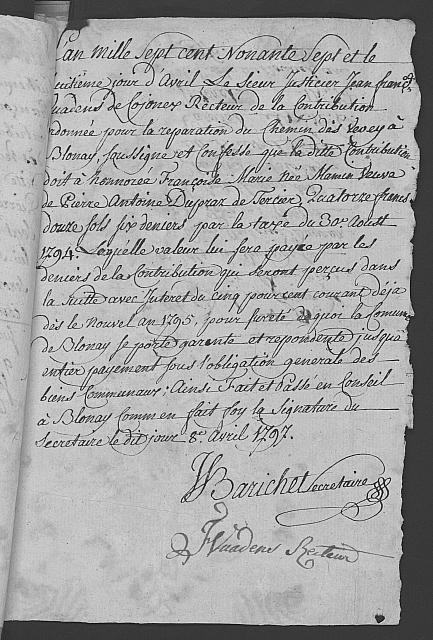 L'an mille Sept Cent Nonante Sept et le
huitième jour d'Avril Le Sieur Justicier Jean franç
Vuadens de Cojonex Recteur de la Contribution
ordonnée pour la reparation du Chemin dès Vevey à
Blonay, soussigné et Confesse que la ditte Contribution
doit à honnorée Françoise Marie Née Mamin Veuve
de Pierre Antoine Dupraz de Tercier, Quatorze francs
douze sols six deniers par la taxe du 30e. Aoust
1794. Laquelle valeur lui sera payée par les
deniers de la Contribution qui seront perçus dans
la Suitte avec Jnteret du Cinq pour cent courant déja
dès le Nouvel an 1795, pour sureté de quoi la Commune
de Blonay se porte garente et repondente jusqu'à
entier payement sous l'obligation generale des
biens Communaux; Ainsi Fait et Passé en Conseil
à Blonay Comme en fait foy la Signature du
Secretaire le dit jour 8e. Avril 1797.
Barichet Secretaire
Vuadens Recteur